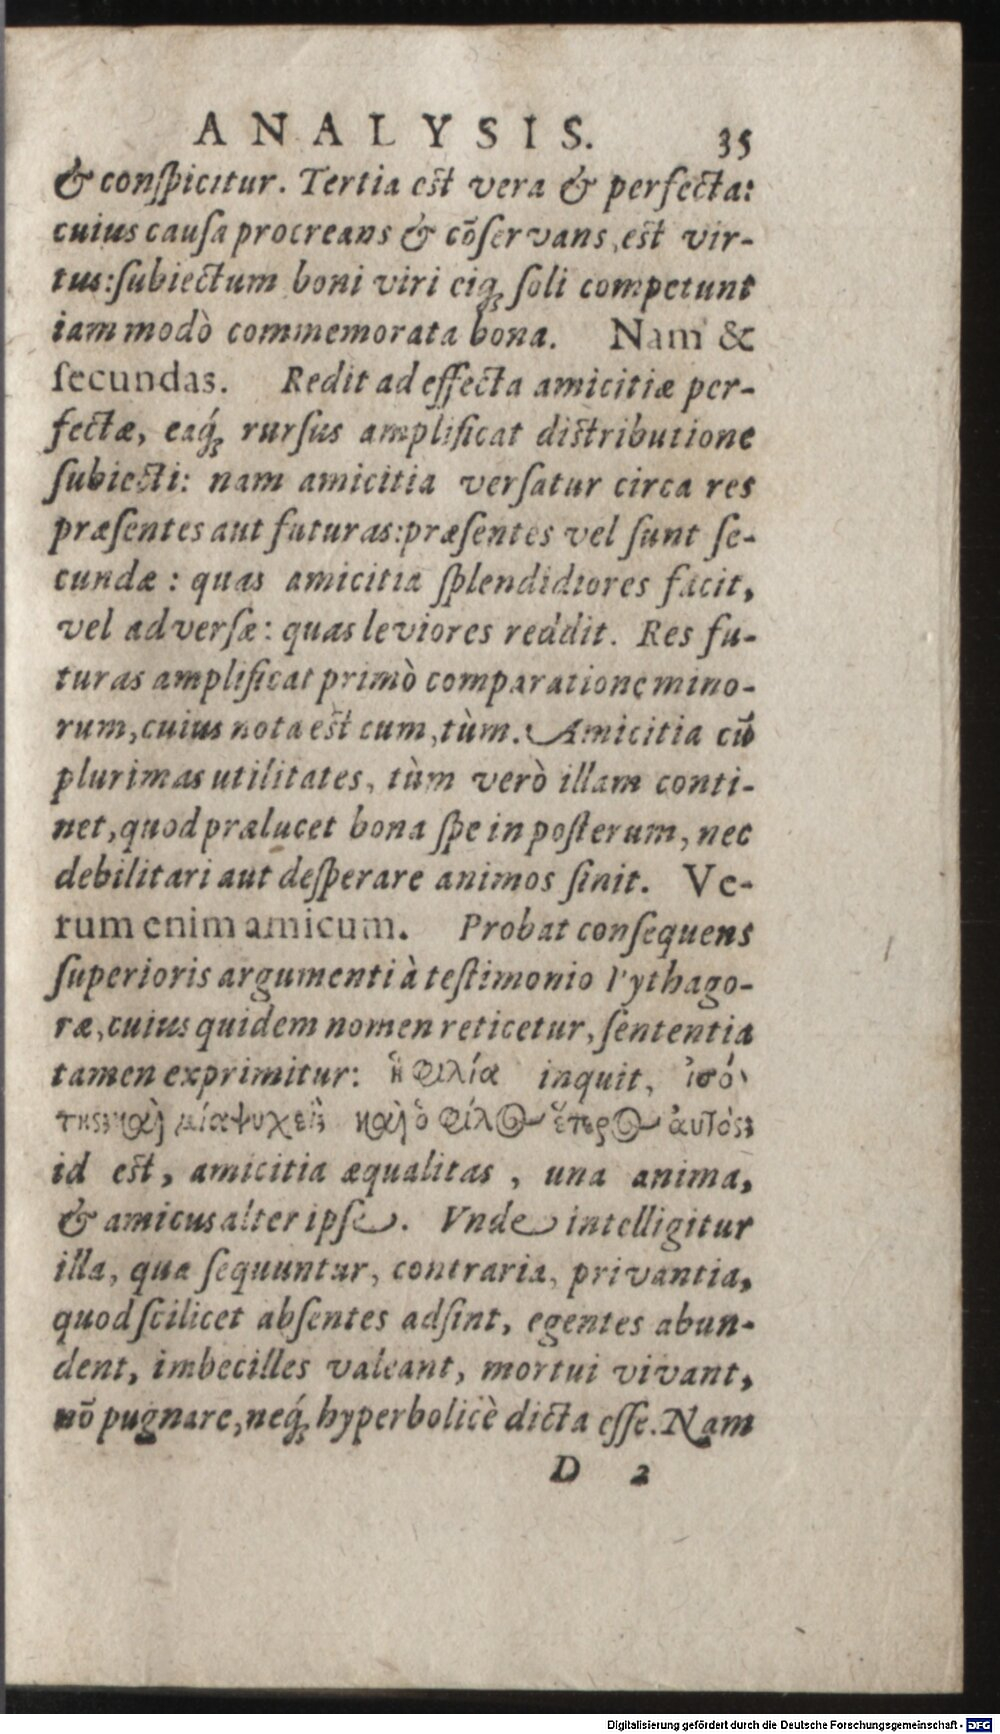 ANALYSIS. 35
& conspicitur. Tertia est vera & perfecta:
cuius causa procreans & cōservans, est vir-
tus: subiectum boni viri eiq; soli competunt
iam modò commemorata bona. Nam &
secundas. Redit ad effecta amicitiæ per-
fectæ, eaq́; rursus amplificat distributione
subiecti: nam amicitia versatur circa res
præsentes aut futuras: præsentes vel sunt se-
cundæ: quas amicitia splendidiores facit,
vel adversæ: quas leviores reddit. Res fu-
turas amplificat primò comparatione mino-
rum, cuius nota est cum, tùm. Amicitia cū
plurimas utilitates, tùm verò illam conti-
net, quod prælucet bona spe in posterum, nec
debilitari aut desperare animos sinit. Ve-
rum enim amicum. Probat consequens
superioris argumenti à testimonio Pythago-
ræ, cuius quidem nomen reticetur, sententia
tamen exprimitur: ἡ φιλία inquit, ἰσό
της καὶ μία ψυχὴ καὶ ὁ φίλος ἕτερος αὐτός
id est, amicitia æqualitas, una anima,
& amicus alter ipse. Vnde intelligitur
illa, quæ sequuntur, contraria, privantia,
quod scilicet absentes adsint, egentes abun-
dent, imbecilles valeant, mortui vivant,
nō pugnare, neq́; hyperbolicè dicta esse. Nam
D 2
Digitalisierung gefördert durch die Deutsche Forschungsgemeinschaft - DFG